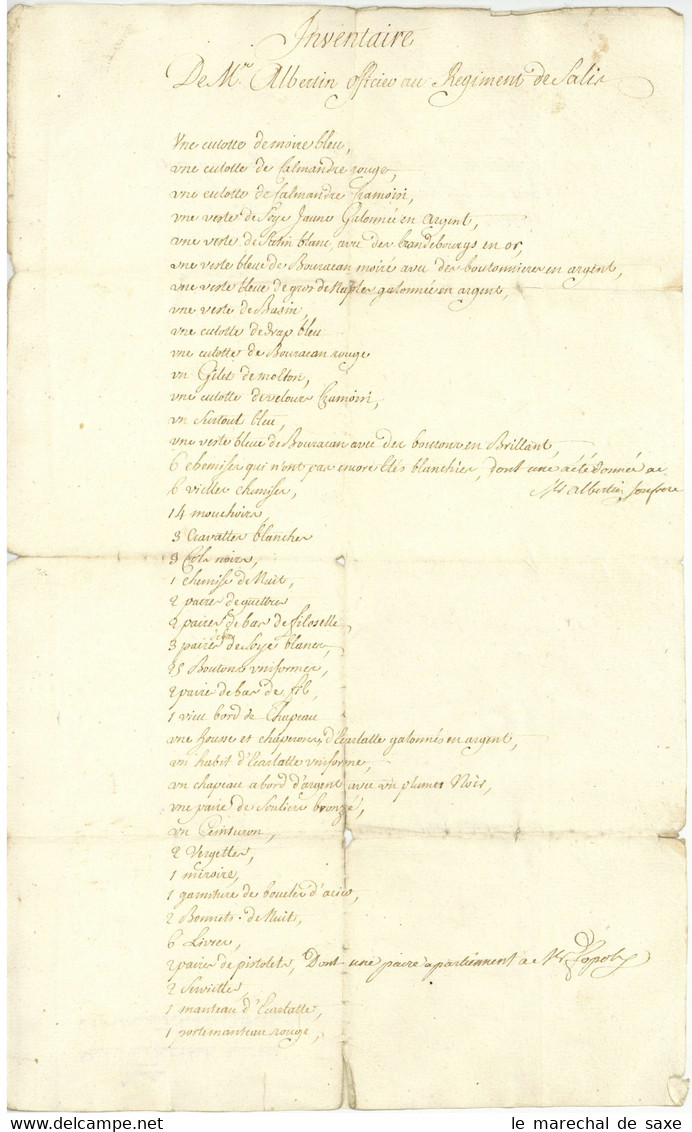 Inventaire
De Mr. Albertin officier au Regiment de Salis
Une culotte de moire bleu,
une culotte de Calmandre rouge,
une culotte de Calmandre Cramoisi,
une veste de Soye Jaune Galonnée en Argent,
une veste de Satin blanc avec des brandebourgs en or,
une veste bleue de Bouracan moiré avec des boutonnieres en argent,
une veste bleue de gros de Naples galonnée en argent,
une veste de Basin
une culotte de drap bleu
une culotte de Bouracan rouge
un Gilet de molton,
une culotte de velours Cramoisi,
un Surtout bleu,
une veste bleue de Bouracan avec des boutons en Brillant,
6 chemises qui n'ont pas encore étés blanchies, dont une a été donnée a
Mr Albertin
6 vielles chemises,
14 mouchoirs
3 Cravattes blanches
3 Cols noirs,
1 chemise de Nuit,
2 paires de guettres
2 paires de bas de filoselle,
3 paires de Soye blancs,
25 Boutons uniformes,
2 paire de bas de fil,
1 vieu bord de Chapeau
une housse et chaperons d'Ecarlatte galonnés en argent,
un habit d'Ecarlatte uniforme,
un chapeau a bord d'argent avec un plumet Noir,
une paire de Souliers bronzé,
un Ceinturon,
2 Vergettes,
1 miroire,
1 garniture de boucles d'acier,
2 Bonnets de Nuit,
6 Livres,
2 paires de pistolets, Dont une paire apartiennent a Mr
2 Serviettes,
1 manteau d'Ecarlatte,
1 porte manteau rouge,
le marechal de saxe